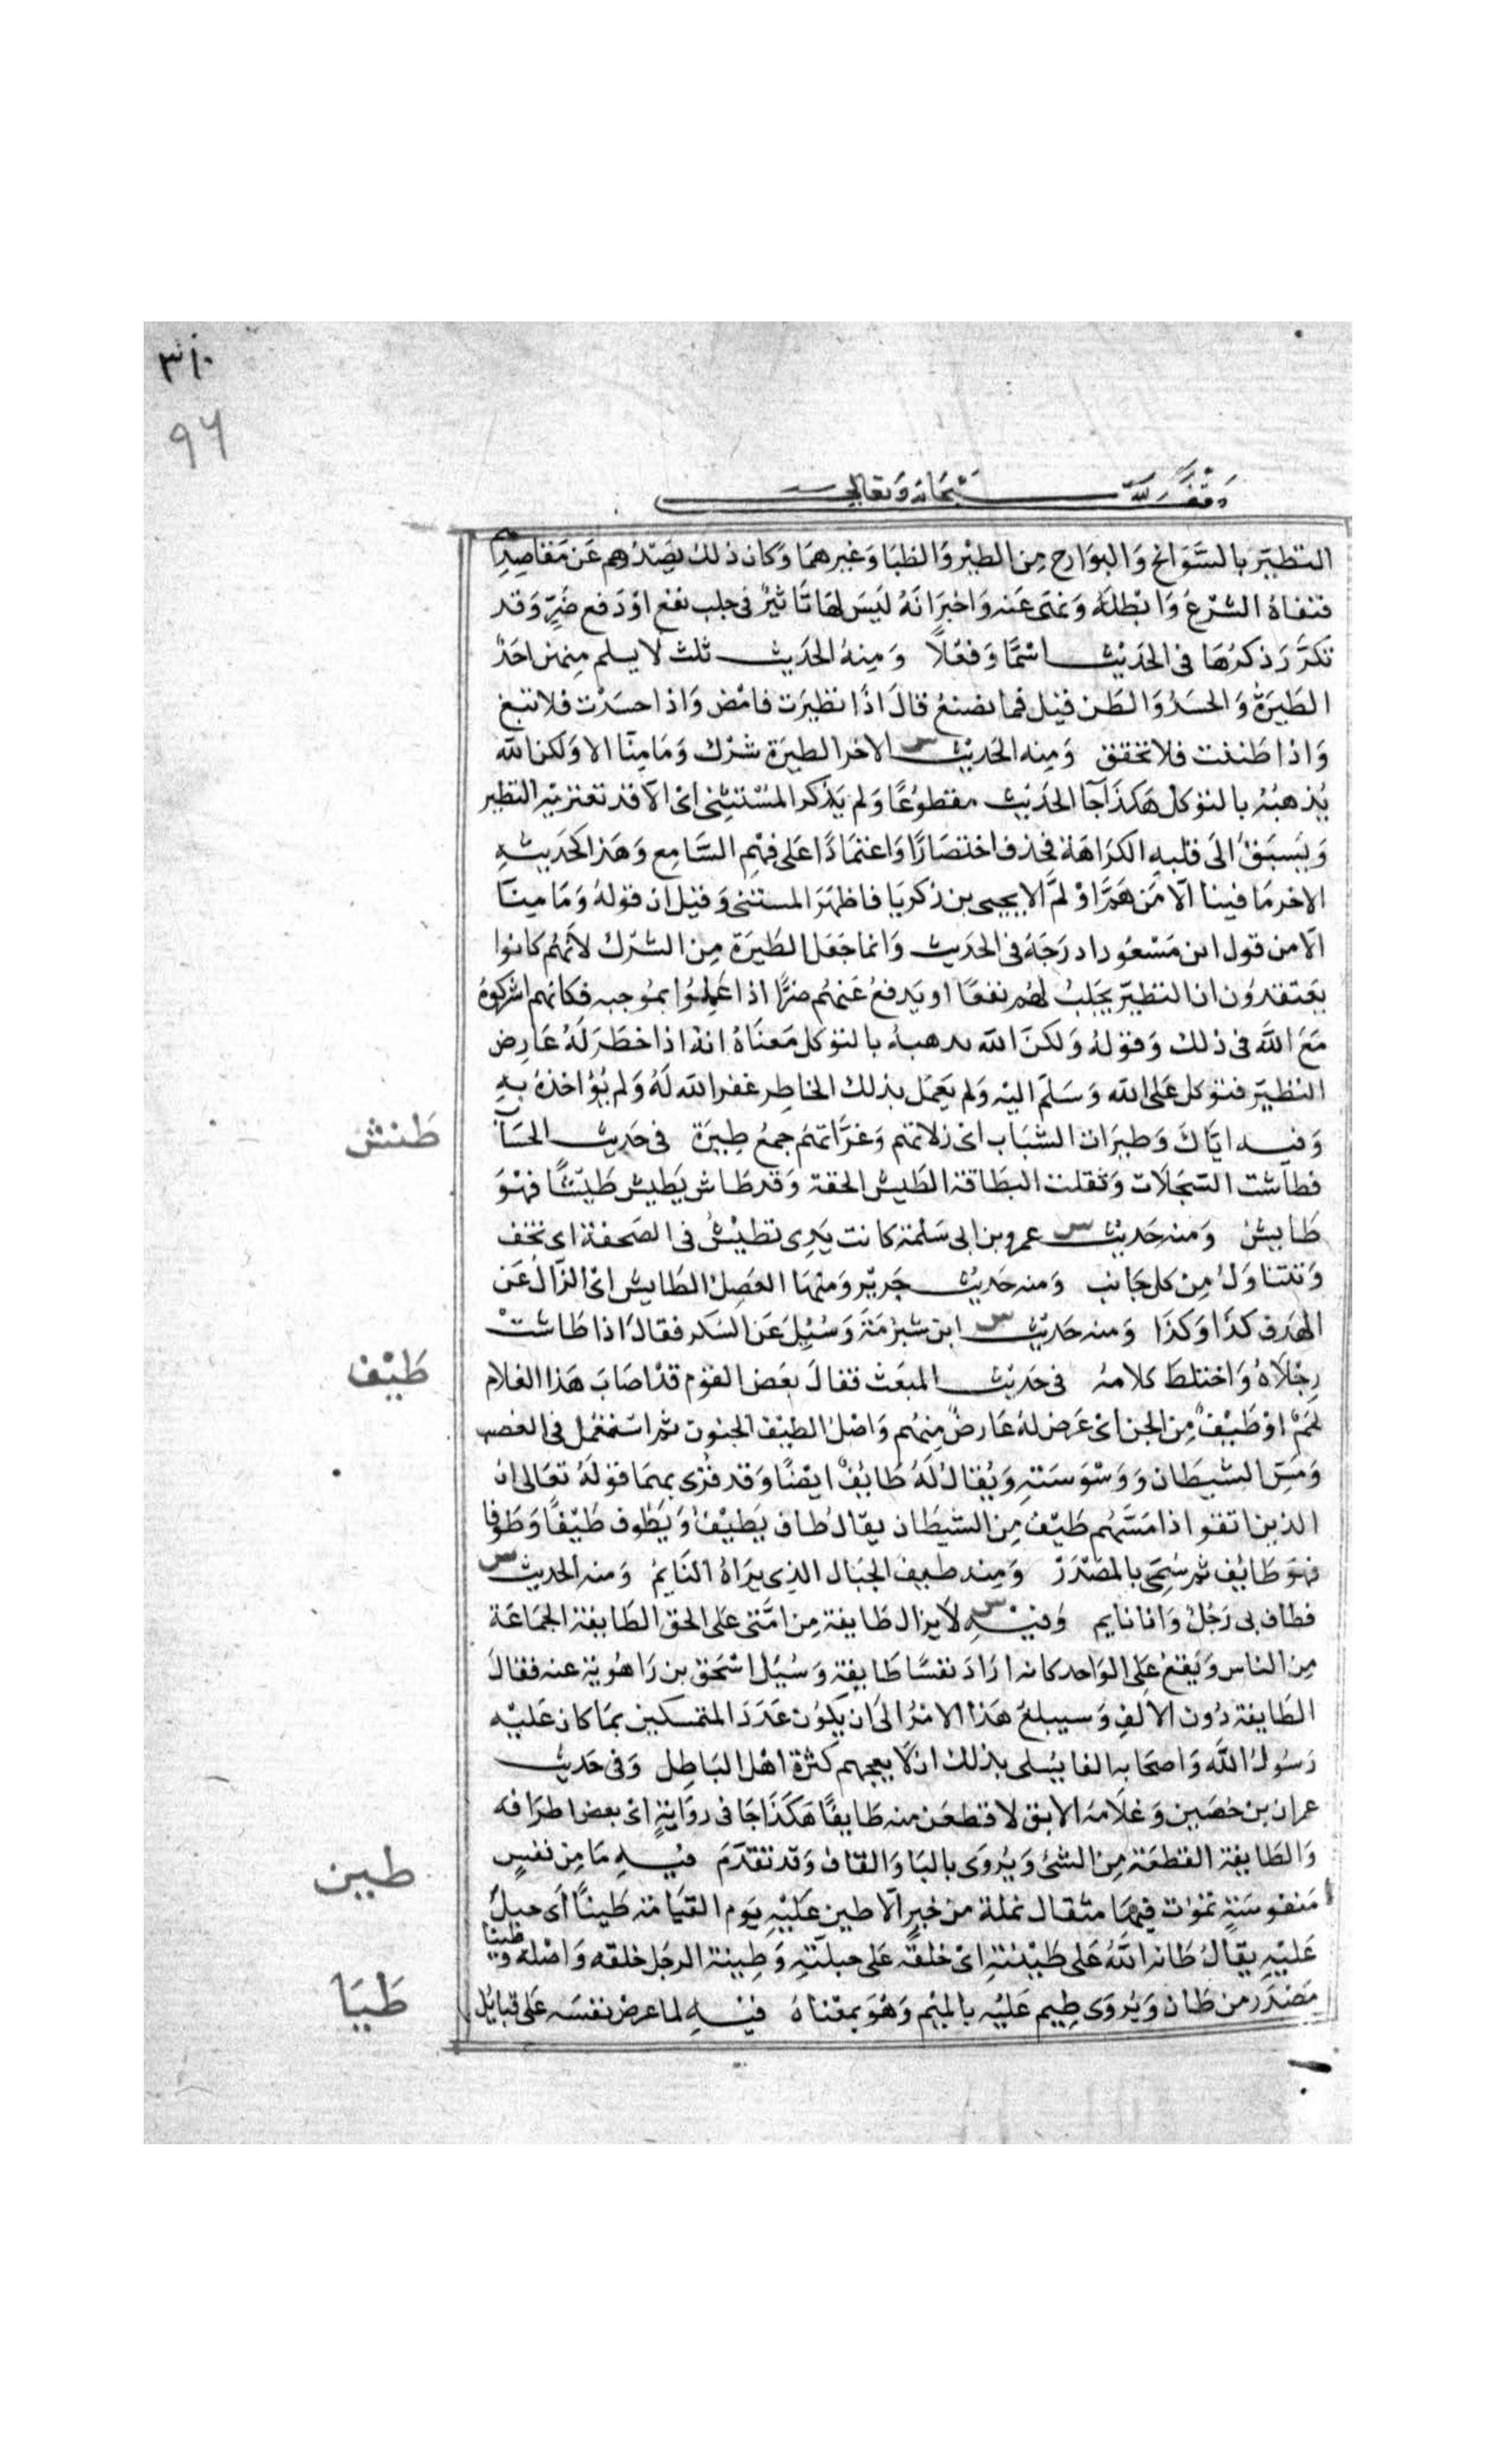 ٣١٠
٩٦
وقف لله سبحانه وتعالى
التطيّر بالسَّوَانح وَالبوَارح مِن الطيْر وَالظبَا وَغيرهمَا وَكان ذلك يصَدّهم عَن مَقاصِدِهم
فنفاهُ الشرْعُ وَابْطلهُ وَنهَى عَنه وَاخبرَ انهُ ليسَ لهَا تاثيرٌ فى جلب نفع اوْ دَفع ضَرٍّ وَقد
تكرَّرَ ذكرُهَا فى الحَديْث اسْمًا وَفعْلًا وَمِنهُ الحَديث ثلث لا يسلم مِنهن احَدٌ
الطَيَرةُ وَالحسَدُ وَالظن قيل فما نصْنعُ قالَ اذا تطيرَت فامْض وَاذا حسَدْت فلا تبغ
وَاذا ظننت فلا تحقق وَمِنه الحَديْث س الاخر الطيرَة شرْك وَمَا مِنّا الا وَلكن الله
يُذهبُهُ بالتوَكل هَكذا جَآ الحَديْث مقطوُعًا وَلم يَذكر المسْتثنى اىْ الّا قد تعتريْه التطير
وَيَسبقُ الَى قلبهِ الكرَاهَة فحذف اختصَارًا وَاعتمادًا عَلى فهْمِ السَّامِع وَهَذا كحَديثهِ
الاخر مَا فينا الّا مَن هَمَّ اوْ لمَّ الا يحيى بن زكريَا فاظهَرَ المستثنى وَقيْل ان قولهُ وَمَا مِنا
الّا من قول ابن مَسْعُود ادرَجَهُ فى الحَديث وَانما جَعَل الطيَرَة مِن الشرْك لانهُم كانوا
يعَتقدوُن ان التطيّر يَجلبُ لهُم نفعًا او يَدفعُ عَنهُم ضرًّا اذا عَمِلوُا بموُجبه فكانهم اشركوهُ
مَعَ اللهَ فى ذلك وَقوْلهُ وَلكنَ الله يدهبهُ بالتوَكل مَعنَاهُ انهُ اذا خطَرَ لهُ عَارض
التطيَر فتوَكل عَلى الله وَسَلّم اليْه وَلم يَعمَل بذلك الخاطِر غفر الله لَهُ وَلم يُؤاخذهُ بهِ
طَيْش
وَفيه ايّاكَ وَطيرَات الشبَاب اىْ زلاتهم وَغرّاتهمْ جمعُ طِيَرَة فى حَديث الحسَاب
فطاشت السّجلّات وَثقلت البطاقة الطيْش الخفة وَقد طَاش يَطيش طَيْشًا فهْوَ
طَايش وَمنه حَديْث س عمرو بن ابى سَلمَة كانت يَدِى تطيْشُ فى الصَحفة اى تخف
وَتتناوَل مِن كل جَانب وَمنه حَديْث جَريْر وَمنهَا العَصِلُ الطَايش اىْ الزَّالُ عَن
الهدَف كذَا وَكذَا وَمنه حَديْث س ابن شبْرمَة وَسُئِلَ عَن السَكر فقالَ اذا طاشتْ
طَيْف
رِجْلَاهُ وَاختلط كلامهُ فى حَديْث المبعَث فقالَ بعَض القوْم قدْ اصَابَ هَذا الغلام
لَمَمٌ اوْ طَيْفٌ مِن الجن اىْ عَرضَ لهُ عَارضٌ مِنهُم وَاصْلُ الطيْف الجنون ثم استعْمل فى الغضب
وَمَسِّ الشيطَان وَوَسْوَسَتهِ وَيُقالُ لهُ طَايْفٌ ايضًا وَقد قُرْى بهمَا قوْلهُ تعَالى انَ
الذين اتقوا اذا مَسَّهُم طَيْف مِن الشيطَان يقالُ طاف يَطيْفُ وَيَطُوف طَيْفًا وَطَوْفا
فهوَ طَائف ثم سُمِّى بالمَصْدَرْ وَمِنه طيف الخيَال الذِى يرَاهُ النَايمُ وَمنه الحديث س
فطاف بى رَجُلٌ وَانا نايم وَفيْهِ س لا يزال طَايفة مِن امَّتى عَلى الحق الطَايفة الجمَاعَة
مِن الناس وَيَقعُ عَلى الوَاحد كانه ارَادَ نفسًا طَايفة وَسُئِل اسْحَق بن رَاهُويَة عنه فقالَ
الطَايفة دُون الالفِ وَسيبلغ هَذا الامْرُ الَى ان يَكوُن عَدَدَ المتمسكين بمَا كان عَليْه
رَسُولُ اللهَ وَاصحَابه الفا يُسَلى بذلك ان لا يعجبهم كثرة اهْل البَاطِل وَفى حَديْث
عمران بن حُصَين وَغلامه الابق لاقطعَن منه طَايفًا هَكَذا جَا فى روَايَةٍ اىْ بعض اطرَافه
طين
وَالطَايفة القطعَة مِن الشىْ وَيُروَى بالبَا وَالقاف وَقد تقدّمَ فيْهِ مَا مِن نفسٍ
مَنفوسَةٍ تموُت فيهَا مثقال نملة من خيرٍ الّا طين عَليْهِ يَوم القيَامَة طينًا اَى جبلَ
عَليْهِ يقالُ طَانه اللهُ عَلى طيْنتهِ اىْ خلقهُ عَلى جبلّتهِ وَطِينة الرجُل خلقه وَاصْله وطينا
طَيَا
مَصْدَر من طَان وَيُروَى طِيم عَليْه بالميْم وَهُوَ بمعْناهُ فيْهِ لما عرض نفسَه عَلى قبايْل